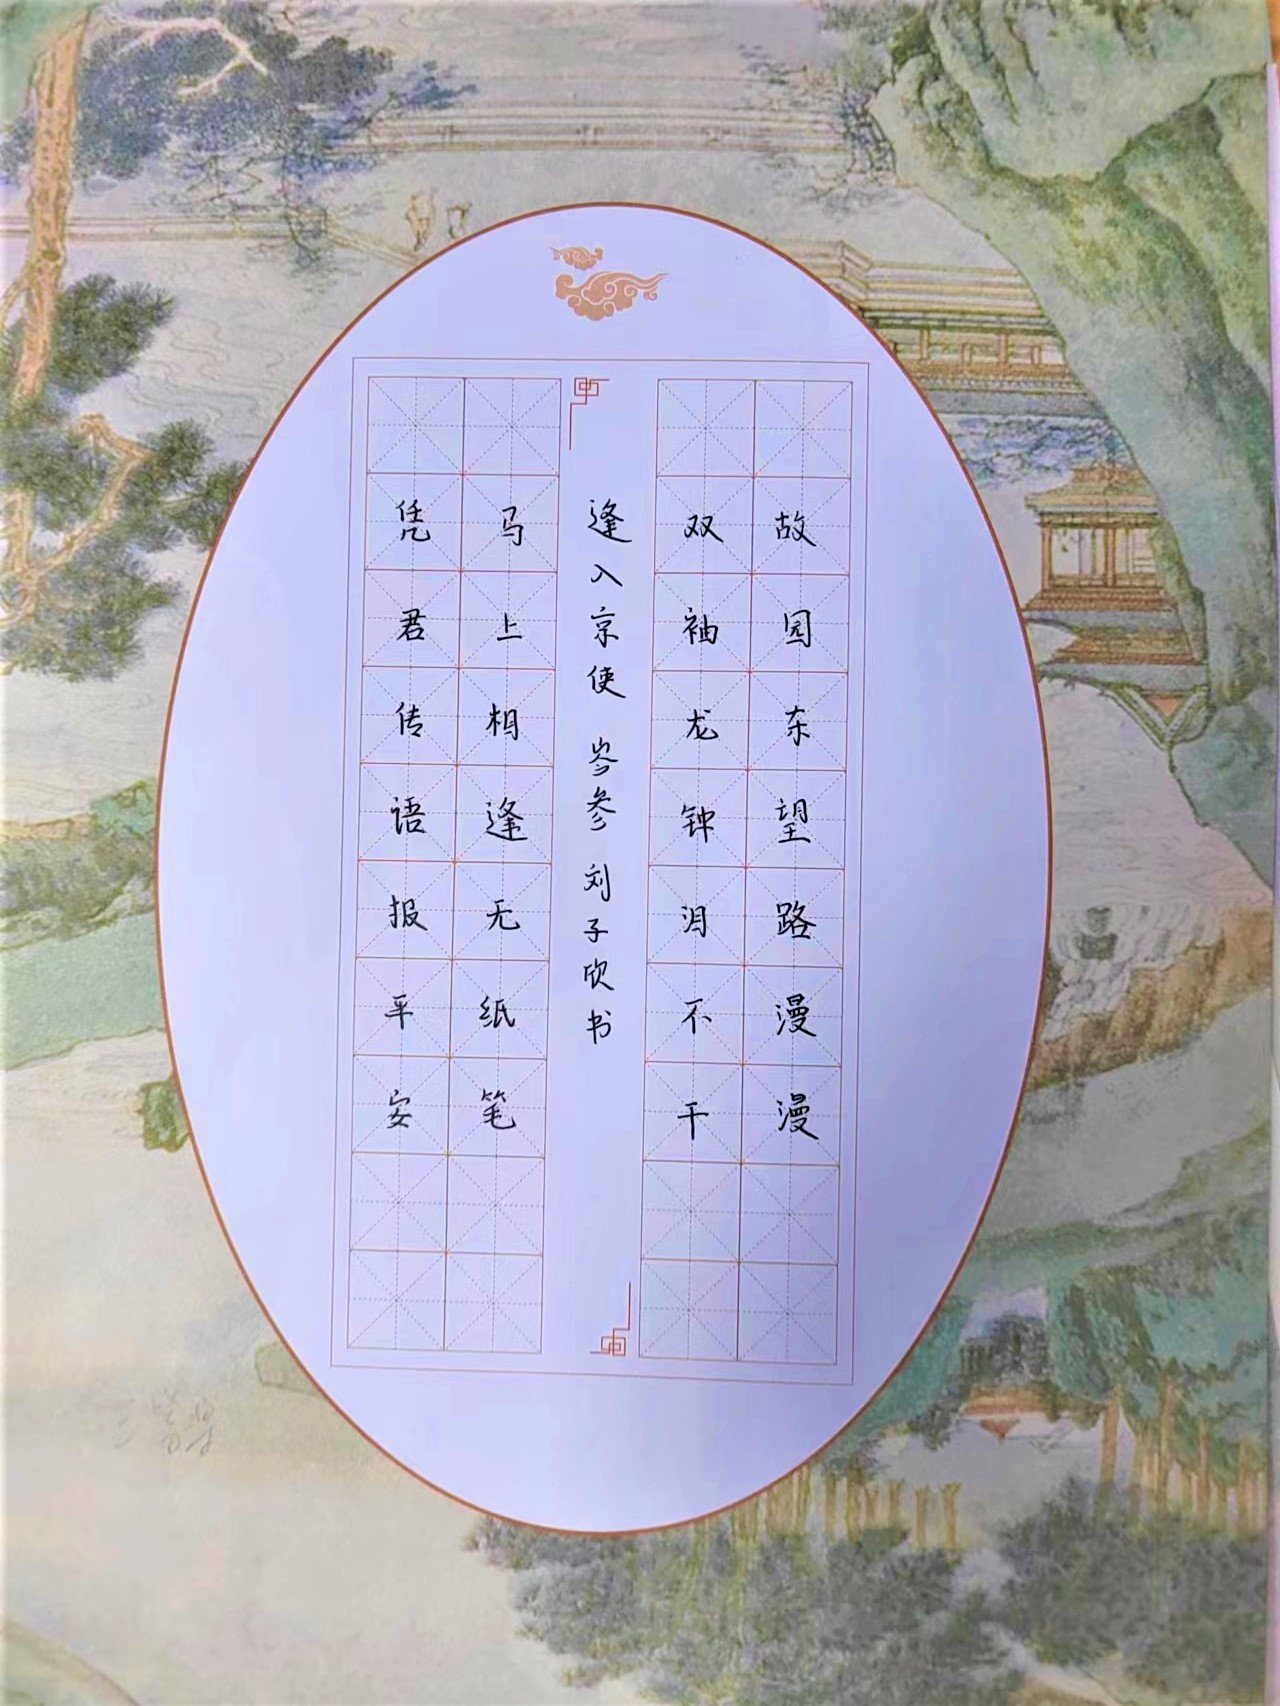 故园东望路漫漫
双袖龙钟泪不干
逢入京使 岑参 刘子欣书
马上相逢无纸笔
凭君传语报平安